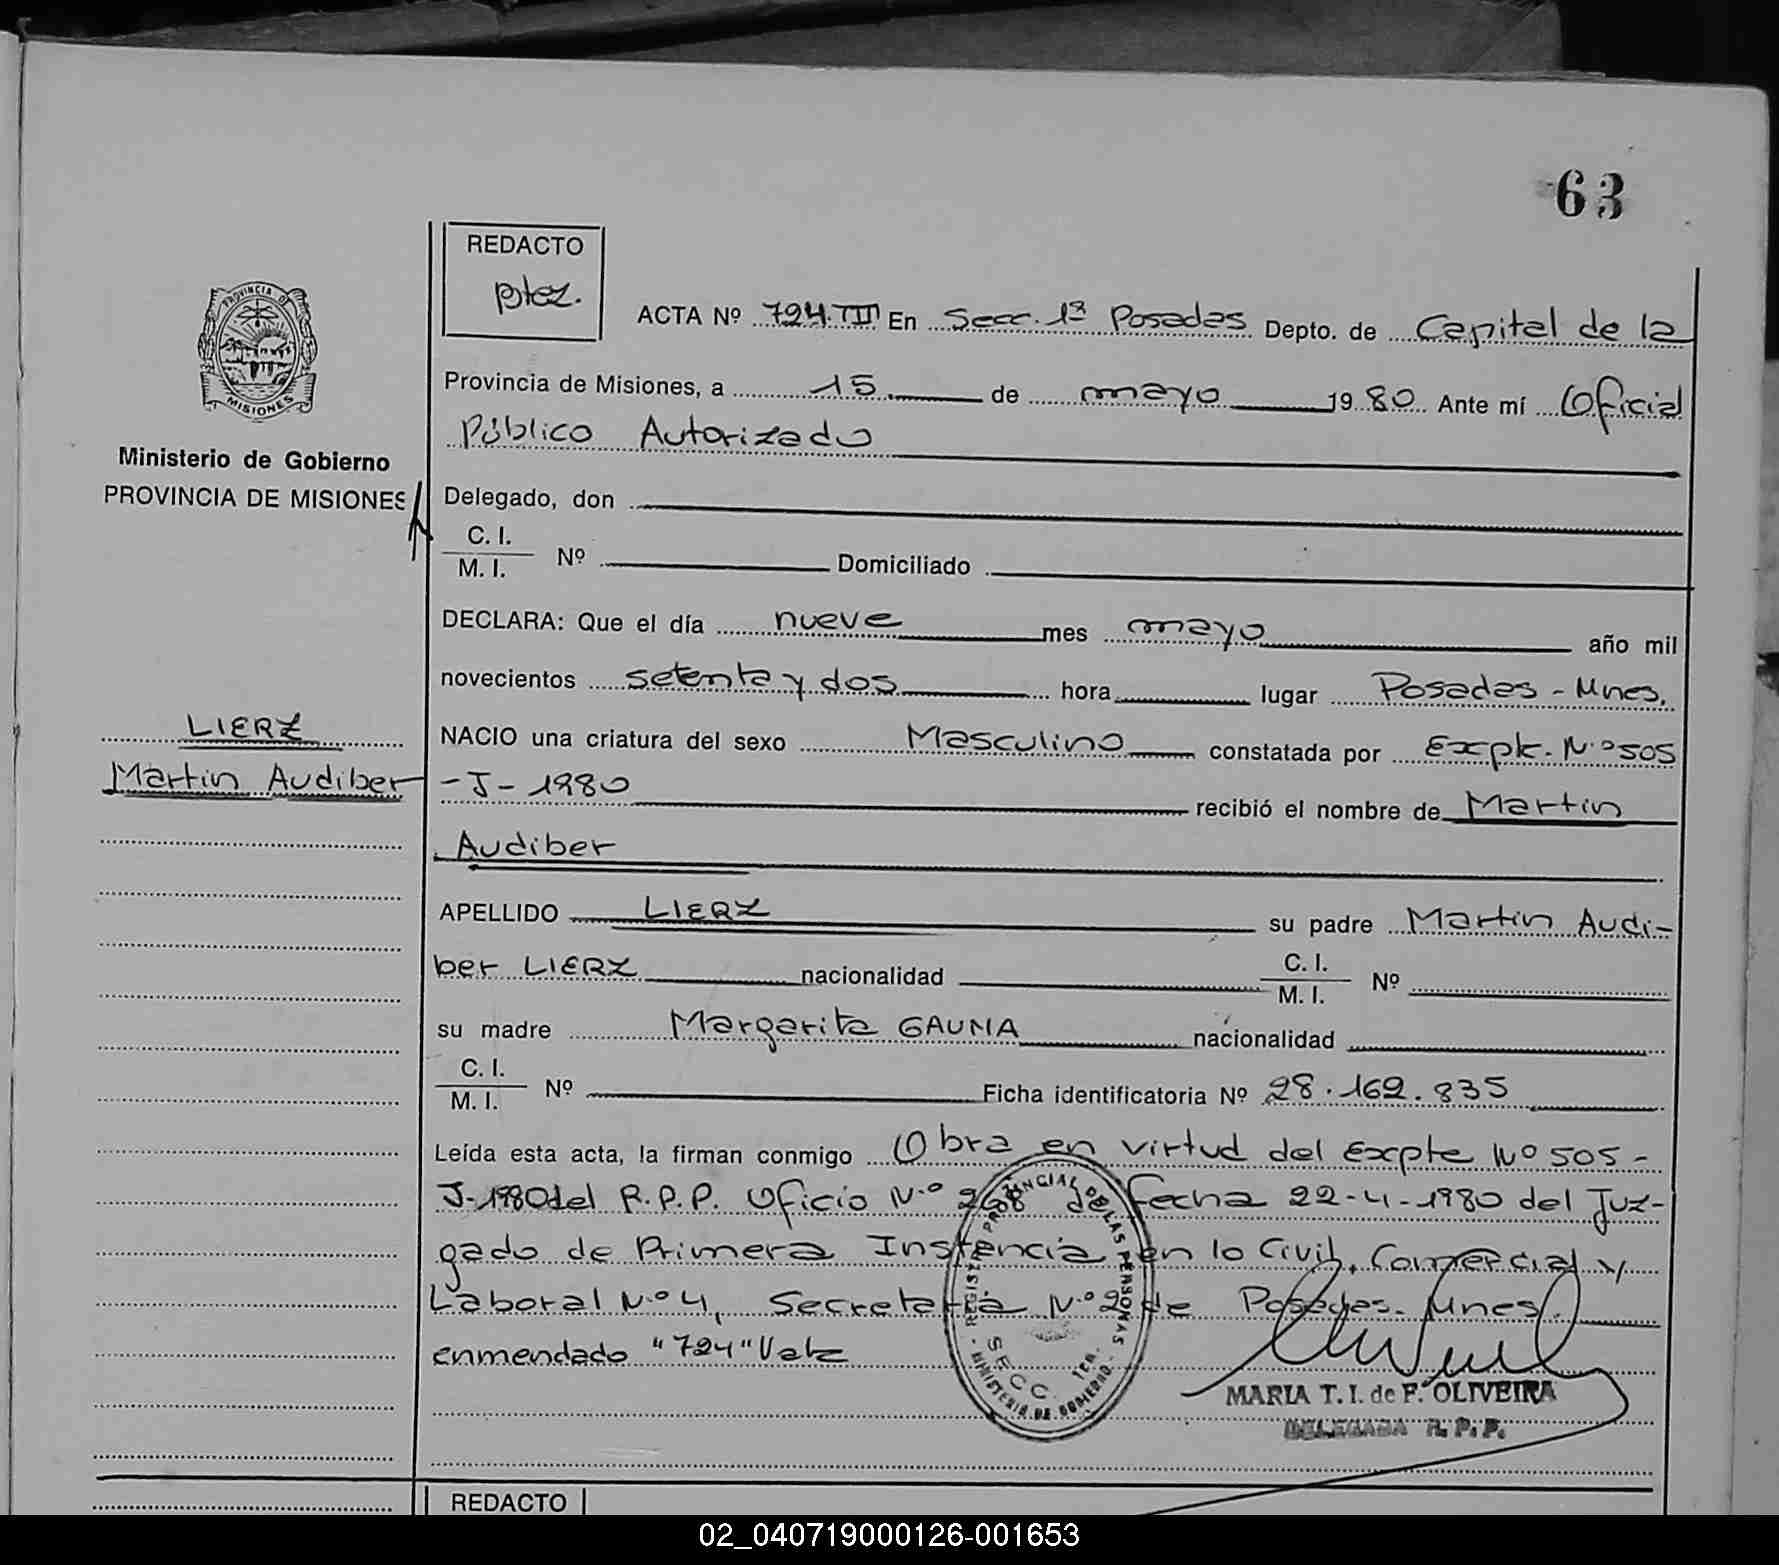 63
REDACTO
ptez.
PROVINCIA DE
MISIONES
Ministerio de Gobierno
PROVINCIA DE MISIONES
ACTA Nº 724.III En Secc. 1ª Posadas Depto. de Capital de la
Provincia de Misiones, a 15 de mayo 1980 Ante mí Oficial
Público Autorizado
Delegado, don
C. I.
M. I. Nº Domiciliado
DECLARA: Que el día nueve mes mayo año mil
novecientos setenta y dos hora lugar Posadas - Mnes.
LIERZ
Martin Audiber
NACIO una criatura del sexo Masculino constatada por Expte. N.º 505
- J - 1980 recibió el nombre de Martin
Audiber
APELLIDO LIERZ su padre Martin Audi-
ber LIERZ nacionalidad C. I.
M. I. Nº
su madre Margarita GAUNA nacionalidad
C. I.
M. I. Nº Ficha identificatoria Nº 28.162.835
Leída esta acta, la firman conmigo Obra en virtud del Expte Nº 505-
J-1980 del R.P.P. Oficio N.º 268 de fecha 22-4-1980 del Juz-
gado de Primera Instancia en lo Civil, Comercial y
Laboral N.º 4, Secretaria N.º 2 de Posadas. Mnes.
enmendado "724" Vale
REGISTRO PROVINCIAL DE LAS PERSONAS
SECC. 1ra.
MINISTERIO DE GOBIERNO
MARIA T. I. de F. OLIVEIRA
DELEGADA R. P. P.
REDACTO
02_040719000126-001653